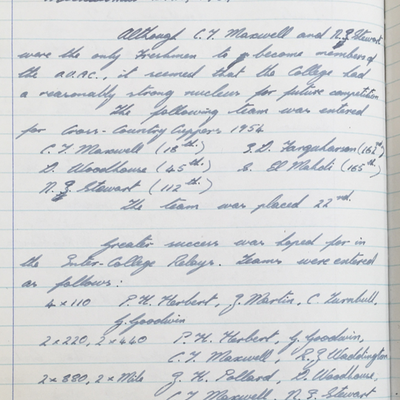 Although C.T. Maxwell and N.J. Stewart
were the only Freshmen to become members of
the O.U.A.C., it seemed that the College had
a reasonably strong nucleus for future competition
The following team was entered
for Cross-Country Cuppers 1954
C.T. Maxwell (18th.) J.D. Farquharson (162nd)
D. Woodhouse (45th.) S. El Mahdi (165th.)
N.J. Stewart (112th)
The team was placed 22nd.
Greater success was hoped for in
the Inter-College Relays. Teams were entered
as follows:
4 x 110 P.H. Herbert, J. Martin, C. Turnbull,
J. Goodwin
2 x 220, 2 x 440 P.H. Herbert, J. Goodwin,
C.T. Maxwell, R.J. Waddington
2 x 880, 2 x Mile J.K. Pollard, D. Woodhouse,
C.T. Maxwell, N.J. Stewart